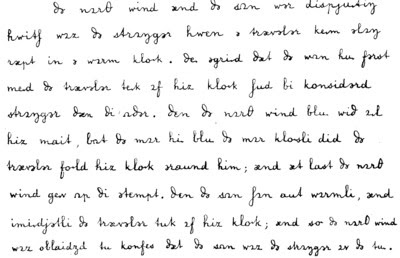 ðə nɔrθ wind ænd ðə sʌn wər dispjutiŋ
hwitʃ wəz ðə strɔŋgər hwen ə trævələr kem əlɔŋ
ræpt in ə wɔrm klok. ðe əgrid ðət ðə wʌn hu fərst
med ðə trævələr tek ɔf hiz klok ʃud bi konsidərd
strɔŋgər ðən ði ʌðər. ðen ðə nɔrθ wind blu wið ɔl
hiz mait, bʌt ðə mɔr hi blu ðə mɔr klosli did ðə
trævələr fold hiz klok əraund him; ænd æt last ðə nɔrθ
wind gev ʌp ði ətempt. ðen ðə sʌn ʃɔn aut wɔrmli, ænd
imidjətli ðə trævələr tuk ɔf hiz klok; ænd so ðə nɔrθ wind
wəz oblaidʒd tu konfes ðət ðə sʌn wəz ðə strɔŋgər əv ðə tu.